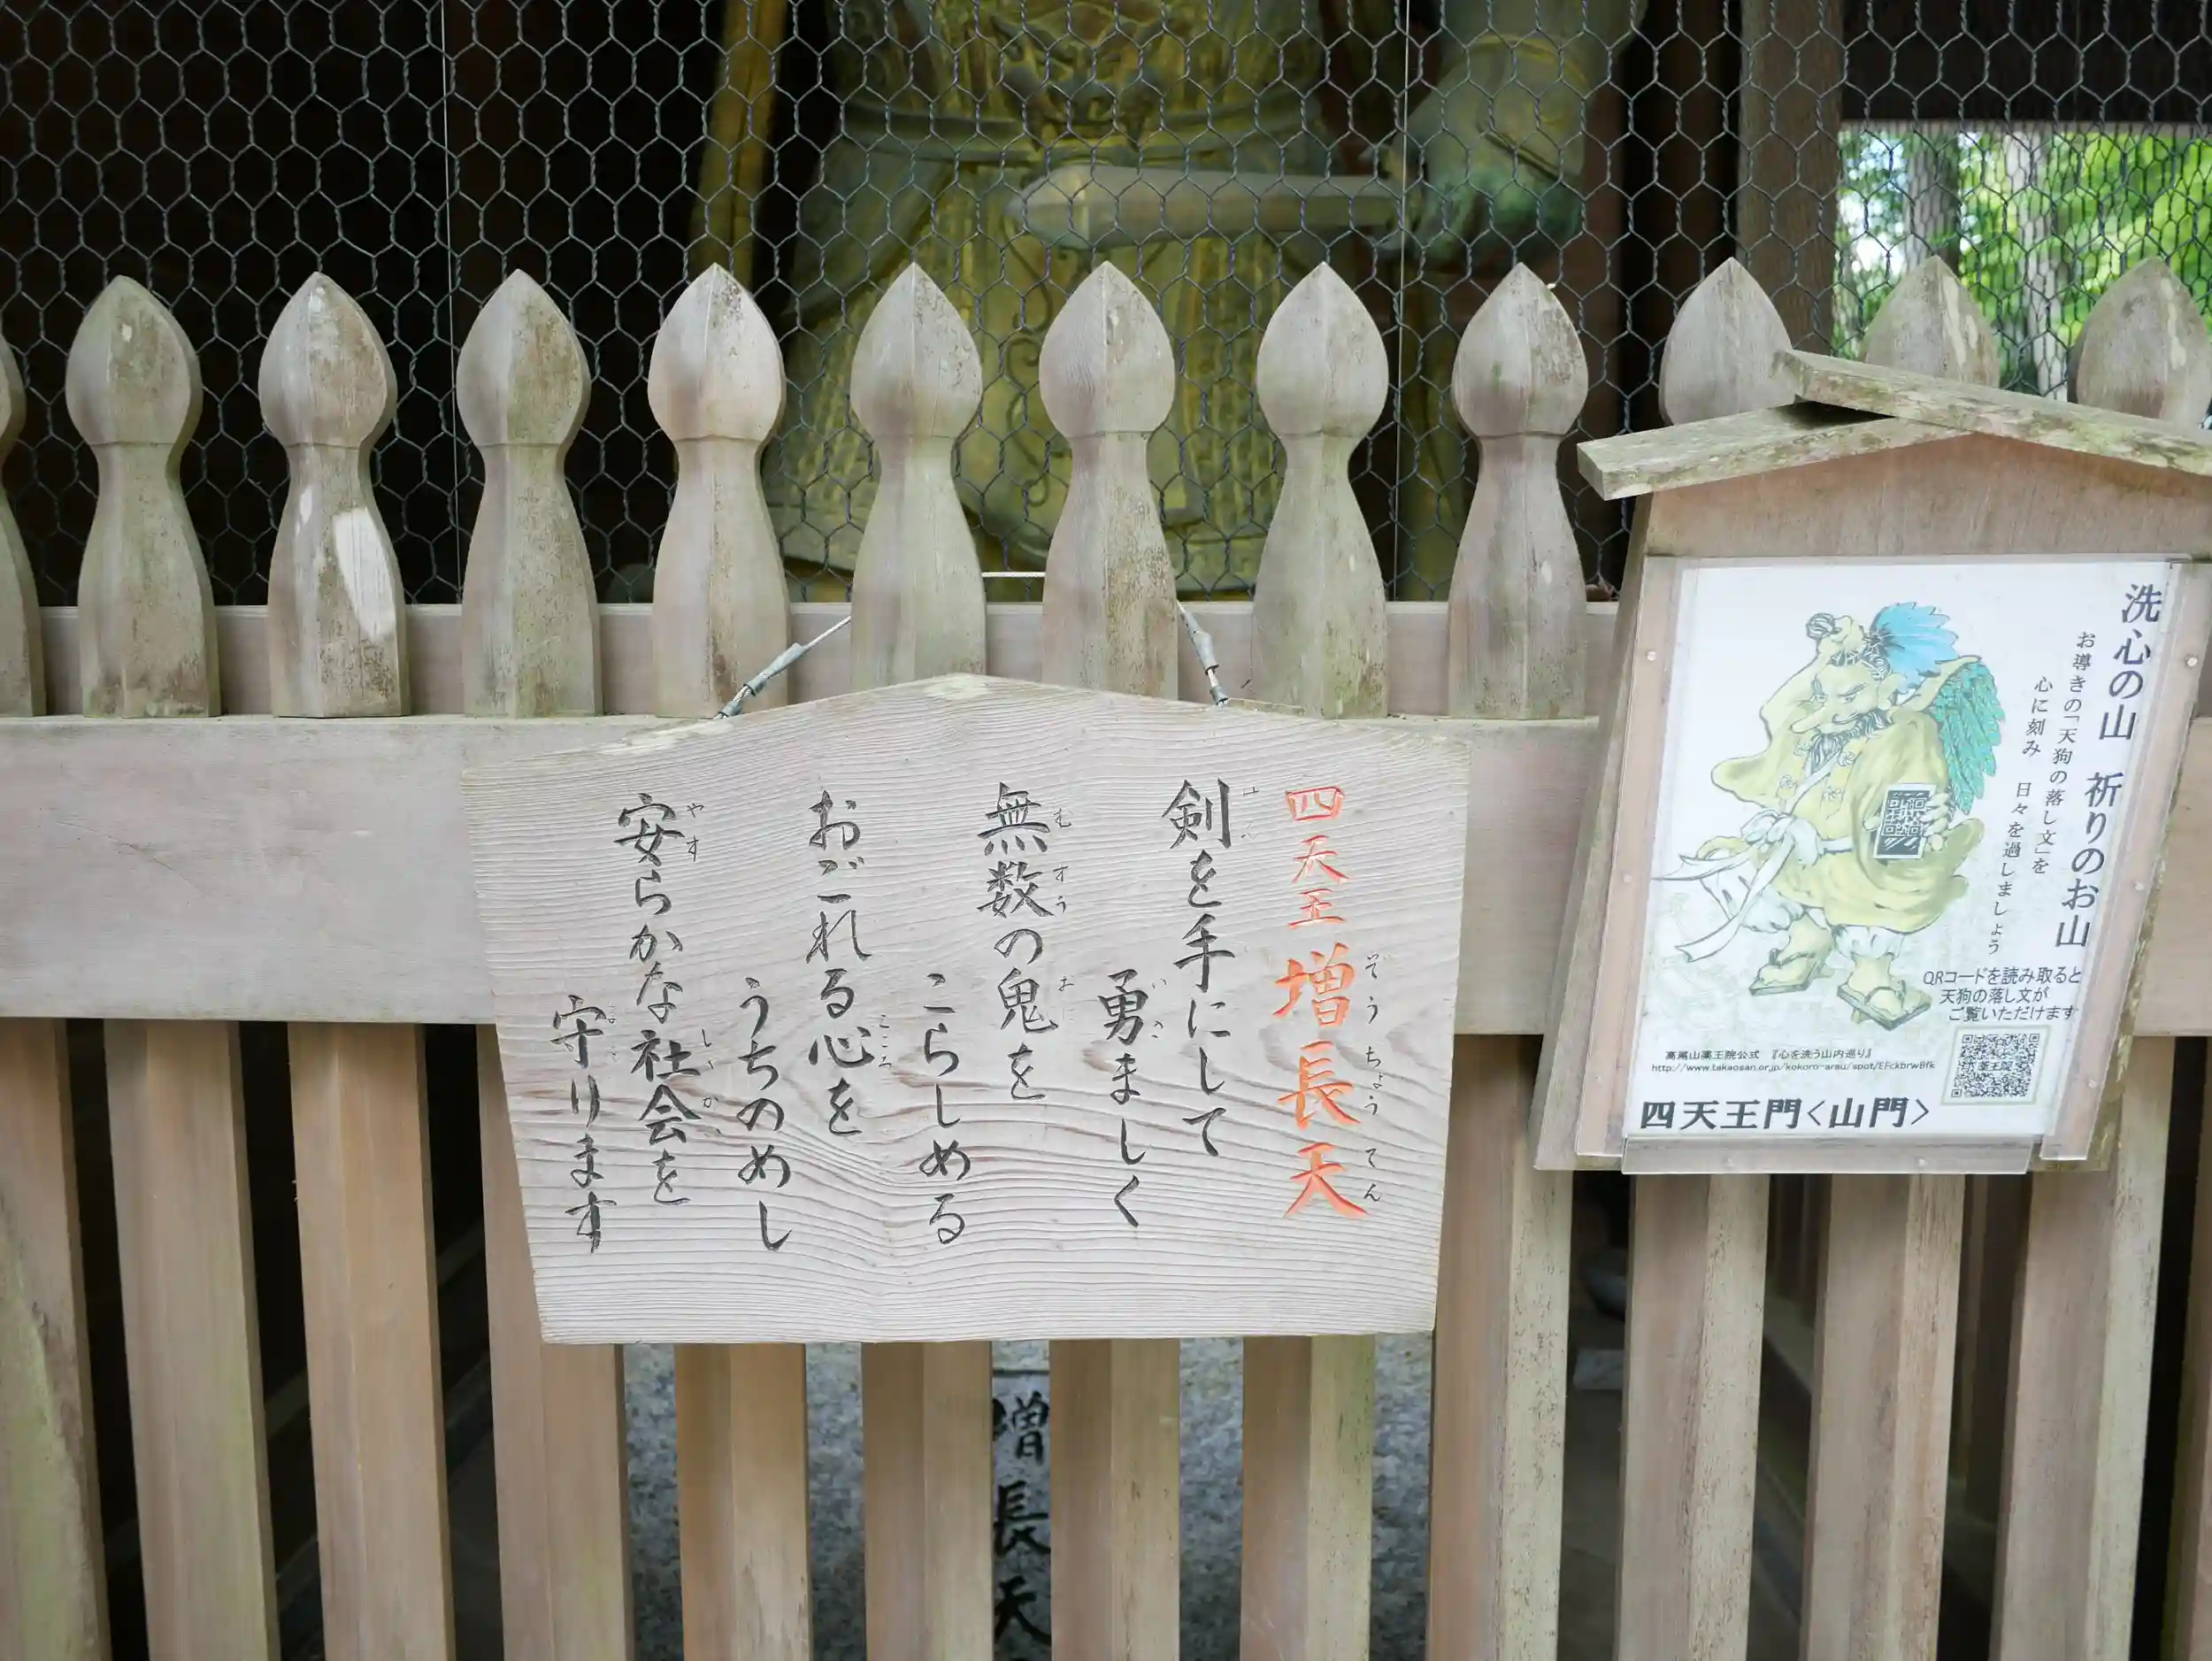 四天王 増長天
ぞうちょうてん
剣を手にして
勇ましく
無数の鬼を
むすう おに
こらしめる
おごれる心を
こころ
うちのめし
安らかな社会を
やす しゃかい
守ります
洗心の山 祈りのお山
お導きの「天狗の落し文」を
心に刻み 日々を過しましょう
QRコードを読み取ると
天狗の落し文が
ご覧いただけます
高尾山薬王院公式 『心を洗う山内巡り』
http://www.takaosan.or.jp/kokoro-arau/spot/EFckbrwBfk
薬王院
四天王門〈山門〉
増長天